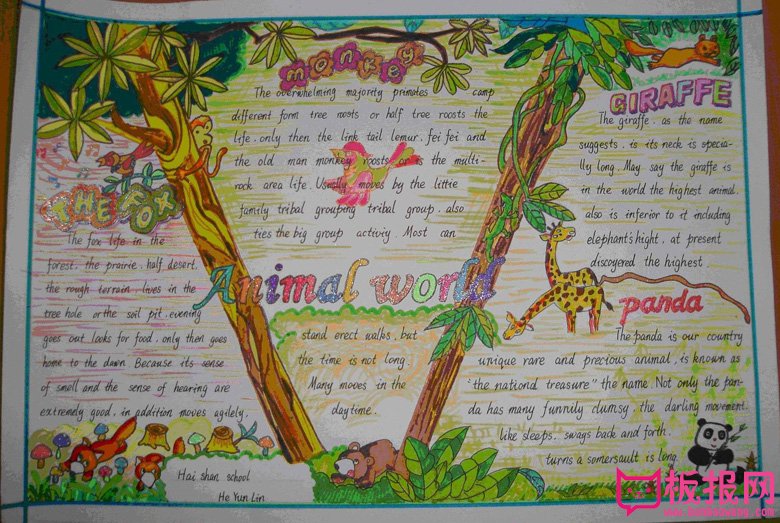 monkey
The overwhelming majority primates camp
different form tree roots or half tree roosts the
life. only then the link tail lemur. fei fei and
the old man monkey roosts or is the multi-
rock area life. Usually moves by the little
family tribal grouping tribal group. also
ties the big group activiy. Most can
stand erect walks, but
the time is not long
Many moves in the
daytime.
THE FOX
The fox life in the
forest. the prairie. half desert,
the rough terrain. lives in the
tree hole or the soil pit. evening
goes out looks for food. only then goes
home to the dawn Because its sense
of smell and the sense of hearing are
extremely good, in addition moves agilely.
Hai shan school
He Yun Lin
Animal world
GIRAFFE
The giraffe. as the name
suggests. is its neck is specia-
lly long. May say the giraffe is
in the world the highest animal.
also is inferior to it including
elephant's hight, at present
discoyered the highest.
panda
The panda is our country
unique rare and precious animal, is known as
"the nationd treasure" the name. Not only the pan-
da has many funnily clumsy. the darling movement.
like sleaps. sways back and forth.
turns a somersault is long.
板报网